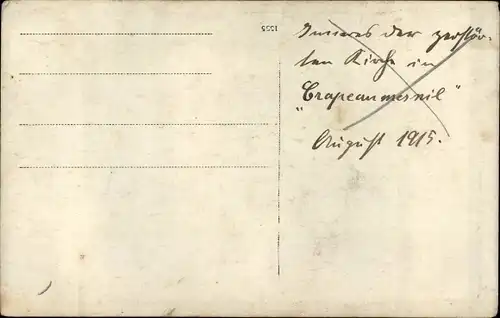 1555
Inneres der zerstör-
ten Kirche in
"Crapeaumesnil"
August 1915.